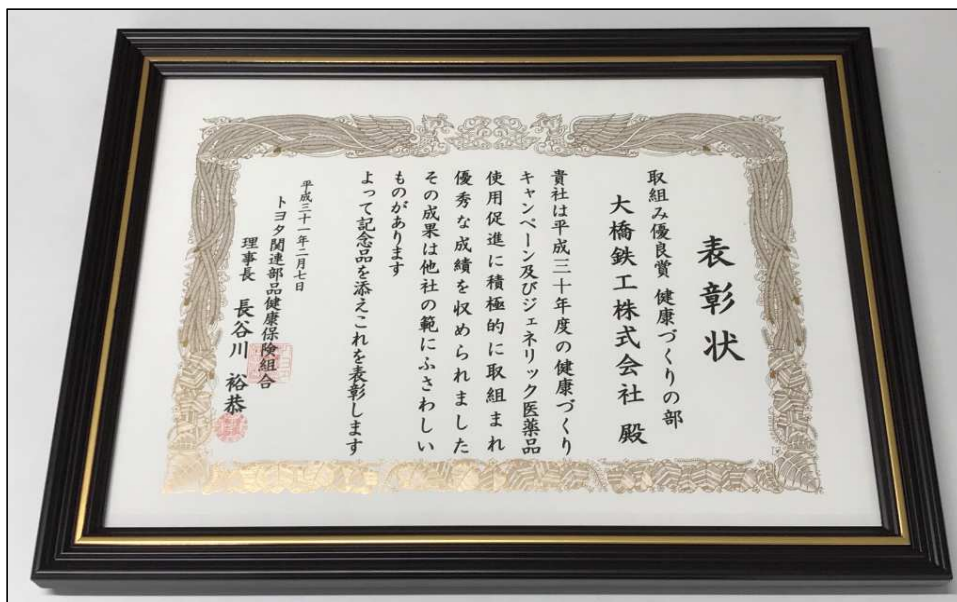 表彰状
取組み優良賞 健康づくりの部
大橋鉄工株式会社 殿
貴社は平成三十年度の健康づくり
キャンペーン及びジェネリック医薬品
使用促進に積極的に取組まれ
優秀な成績を収められました
その成果は他社の範にふさわしい
ものがあります
よって記念品を添えこれを表彰します
平成三十一年二月七日
トヨタ関連部品健康保険組合
理事長 長谷川 裕恭